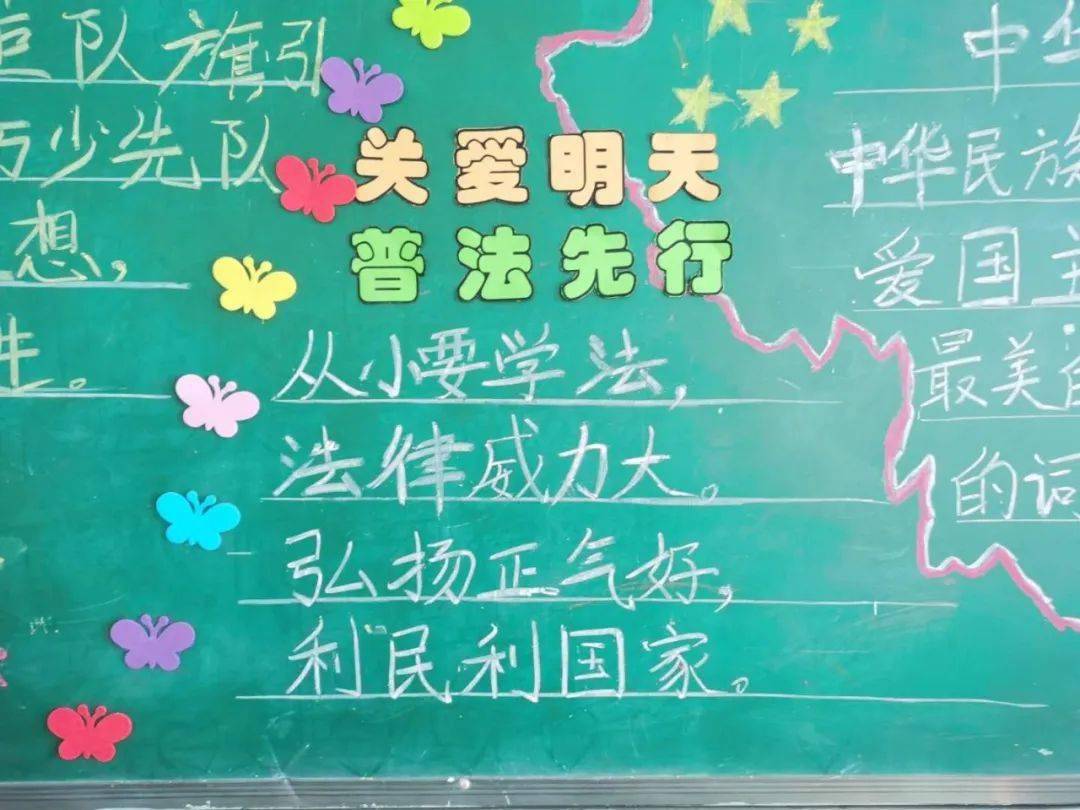 队旗引
少先队
想,
。
关爱明天
普法先行
从小要学法,
法律威力大。
弘扬正气好,
利民利国家。
中华
中华民族
爱国主
最美
的词